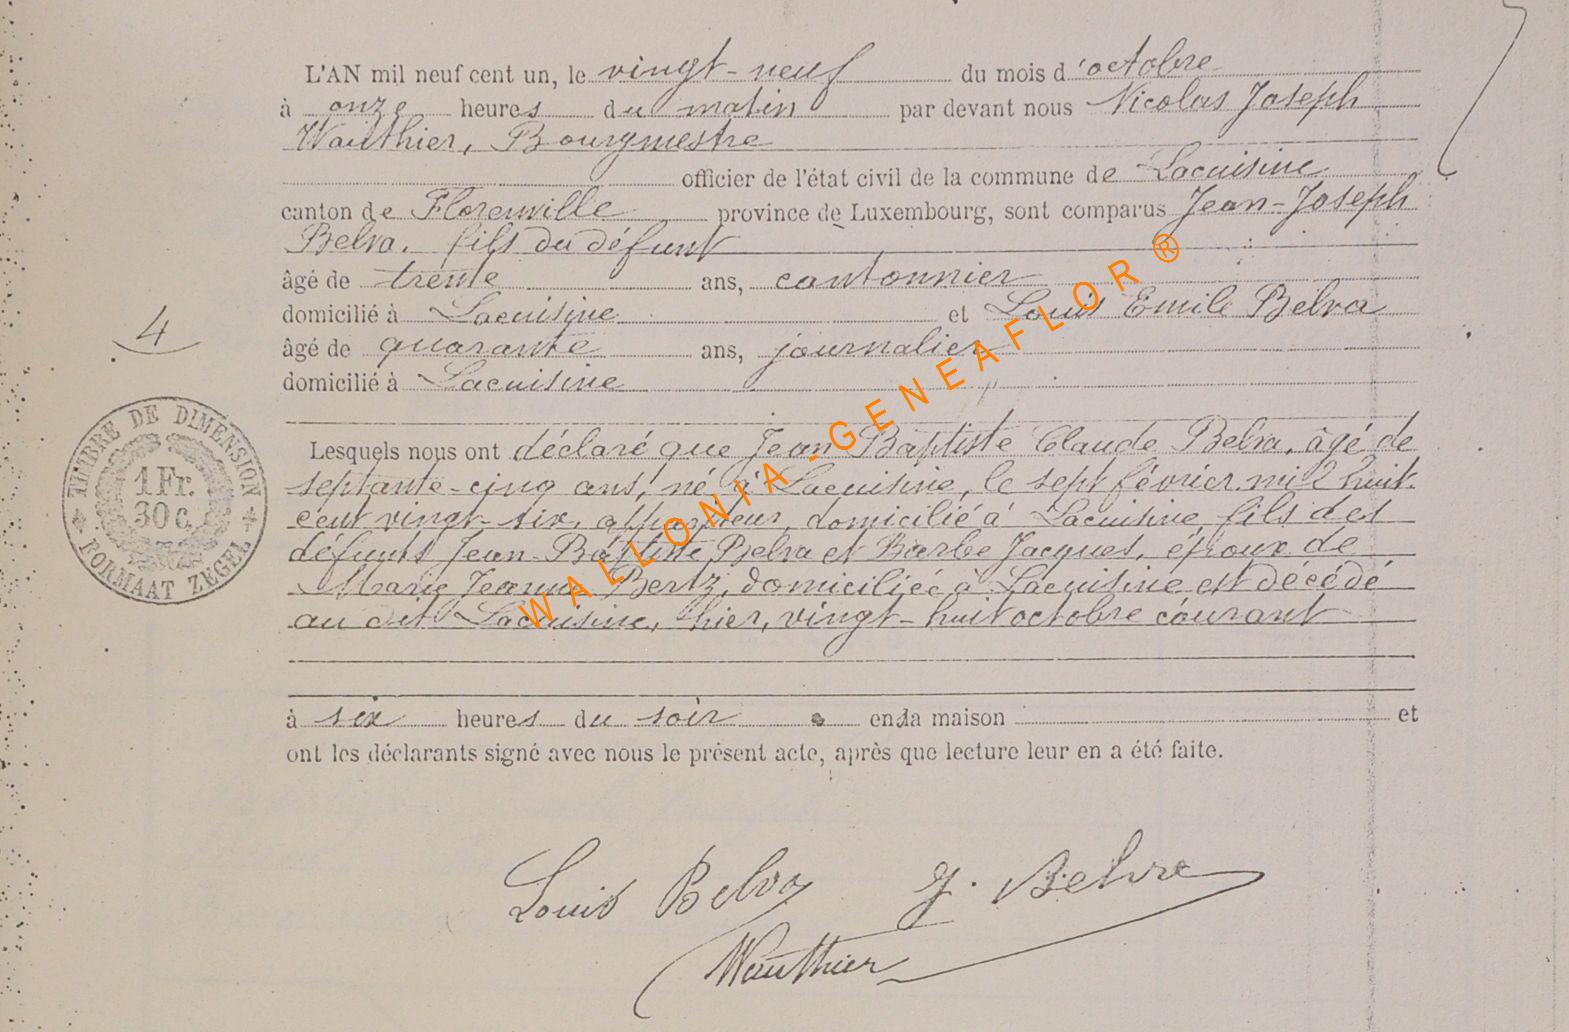 L'AN mil neuf cent un, le vingt-neuf du mois d'octobre
à onze heures du matin par devant nous Nicolas Joseph
Wauthier, Bourgmestre
officier de l'état civil de la commune de Lacuisine
canton de Florenville province de Luxembourg, sont comparus Jean-Joseph
Belva, fils du défunt
âgé de trente ans, cantonnier
domicilié à Lacuisine et Louis Emile Belva
4
âgé de quarante ans, journalier
domicilié à Lacuisine
TIMBRE DE DIMENSION
1 Fr.
30 c.
FORMAAT ZEGEL
Lesquels nous ont déclaré que Jean Baptiste Claude Belva, âgé de
septante-cinq ans, né à Lacuisine, le sept février mil huit
cent vingt-six, appariteur, domicilié à Lacuisine, fils des
défunts Jean-Baptiste Belva et Barbe Jacques, époux de
Marie Jeanne Bertz, domiciliée à Lacuisine est décédé
au dit Lacuisine, hier, vingt-huit octobre courant
à six heures du soir en sa maison et
ont les déclarants signé avec nous le présent acte, après que lecture leur en a été faite.
Louis Belva J. Belva
Wauthier
WALLONIA-GENEAFLOR ®